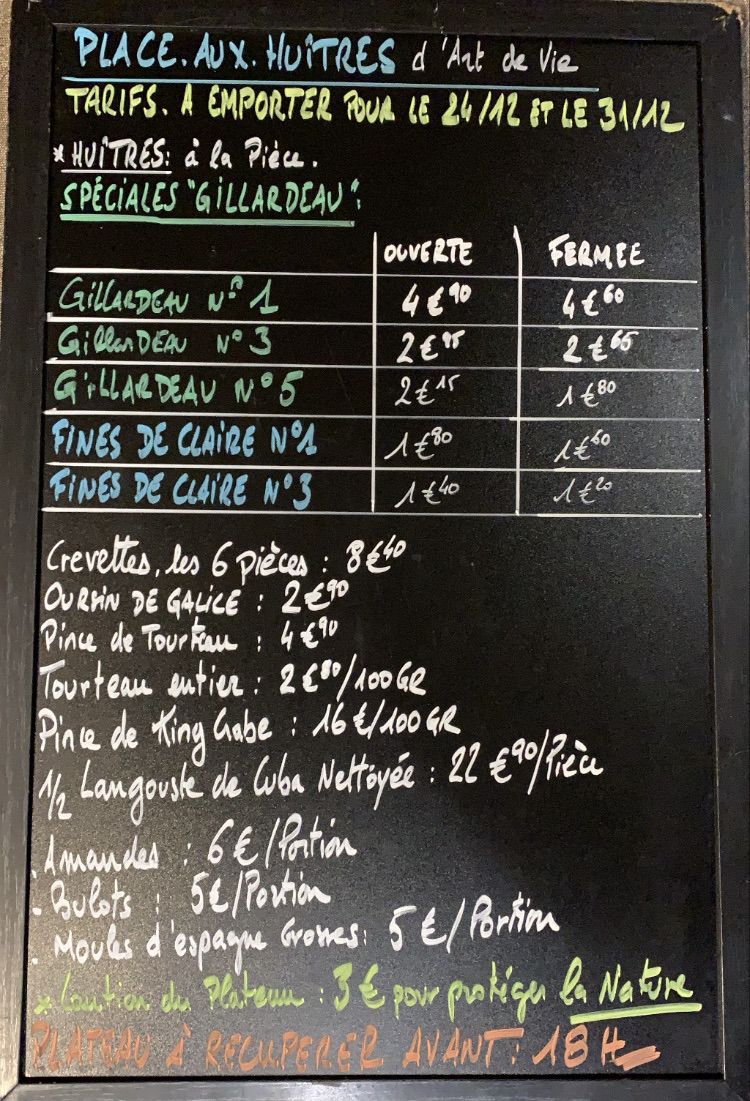 PLACE.AUX.HUÎTRES d'Art de Vie
TARIFS. A EMPORTER POUR LE 24/12 ET LE 31/12
* HUÎTRES: à la Pièce.
SPÉCIALES "GILLARDEAU":
OUVERTE FERMEE
GILLARDEAU N° 1 4€90 4€60
GillarDEAU N° 3 2€95 2€65
GILLARDEAU N° 5 2€15 1€80
FINES DE CLAIRE N°1 1€80 1€60
FINES DE CLAIRE N°3 1€40 1€20
Crevettes, les 6 pièces : 8€40
OURSIN DE GALICE : 2€90
Pince de Tourteau : 4€90
Tourteau entier : 2€80/100GR
Pince de King Crabe : 16€/100GR
1/2 Langouste de Cuba Nettoyée : 22€90/Pièce
. Amandes : 6€/Portion
. Bulots : 5€/Portion
. Moules d'espagne Grosses: 5€/Portion
* Caution du Plateau : 3€ pour protéger la Nature
PLATEAU À RECUPERER AVANT : 18H